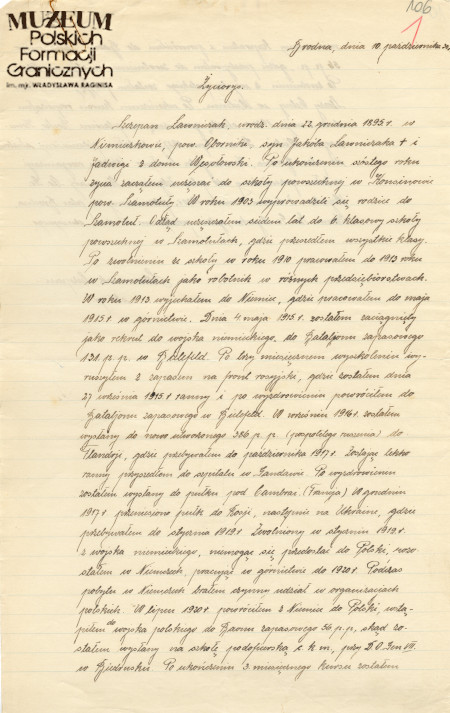 106
1
MUZEUM
Polskich
Formacji
Granicznych
im. mjr. WŁADYSŁAWA RAGINISA
Grodno, dnia 10. października
Życiorys.
Szczepan Ławniczak, urodz. dnia 22 grudnia 1895 r. w
pow. Oborniki, syn Jakóba Ławniczaka † i
Jadwigi z domu Węsołowski. Po ukończeniu szóstego roku
życia zacząłem uczęszczać do szkoły powszechnej w
pow. Szamotuły. W roku 1903 wyprowadzili się rodzice do
Szamotuł. Odtąd uczęszczałem siedem lat do 6. klasowej szkoły
powszechnej w Szamotułach, gdzie przeszedłem wszystkie klasy.
Po zwolnieniu ze szkoły w roku 1910 pracowałem do 1913 roku
w Szamotułach jako robotnik w różnych przedsiębiorstwach.
W roku 1913 wyjechałem do Niemiec, gdzie pracowałem do maja
1915 r. w górnictwie. Dnia 4 maja 1915 r. zostałem zaciągnięty
jako rekrut do wojska niemieckiego, do bataljonu zapasowego
131 p. p. w Bielefeld. Po trzy miesięcznem wyszkoleniu wy-
ruszyłem z zapasem na front rosyjski, gdzie zostałem dnia
27 września 1915 r. ranny i po wyzdrowieniu powróciłem do
bataljonu zapasowego w Bielefeld. W wrześniu 1916 r. zostałem
wysłany do nowo utworzonego 386 p. p. (pospolitego ruszenia) do
Flandrji, gdzie przebywałem do października 1917 r. Zostając lekko
ranny przyszedłem do szpitala w Po wyzdrowieniu
zostałem wysłany do pułku pod Cambrai. (Francja) W grudniu
1917 r. przeniesiono pułk do Rosji, następnie na Ukrainę, gdzie
przebywałem do stycznia 1919 r. Zwolniony w styczniu 1919 r.
z wojska niemieckiego, niemogąc się przedostać do Polski, zosta-
łem w Niemczech, pracując w górnictwie do 1920 r. Podczas
pobytu w Niemczech brałem czynny udział w organizacjach
polskich. W lipcu 1920 r. powróciłem z Niemiec do Polski, wstą-
piłem do wojska polskiego do baonu zapasowego 56 p. p., skąd zo-
stałem wysłany na szkołę podoficerską c. k. m., przy D. O. Gen VII.
w Biedrusku. Po ukończeniu 3 miesięcznego kursu zostałem